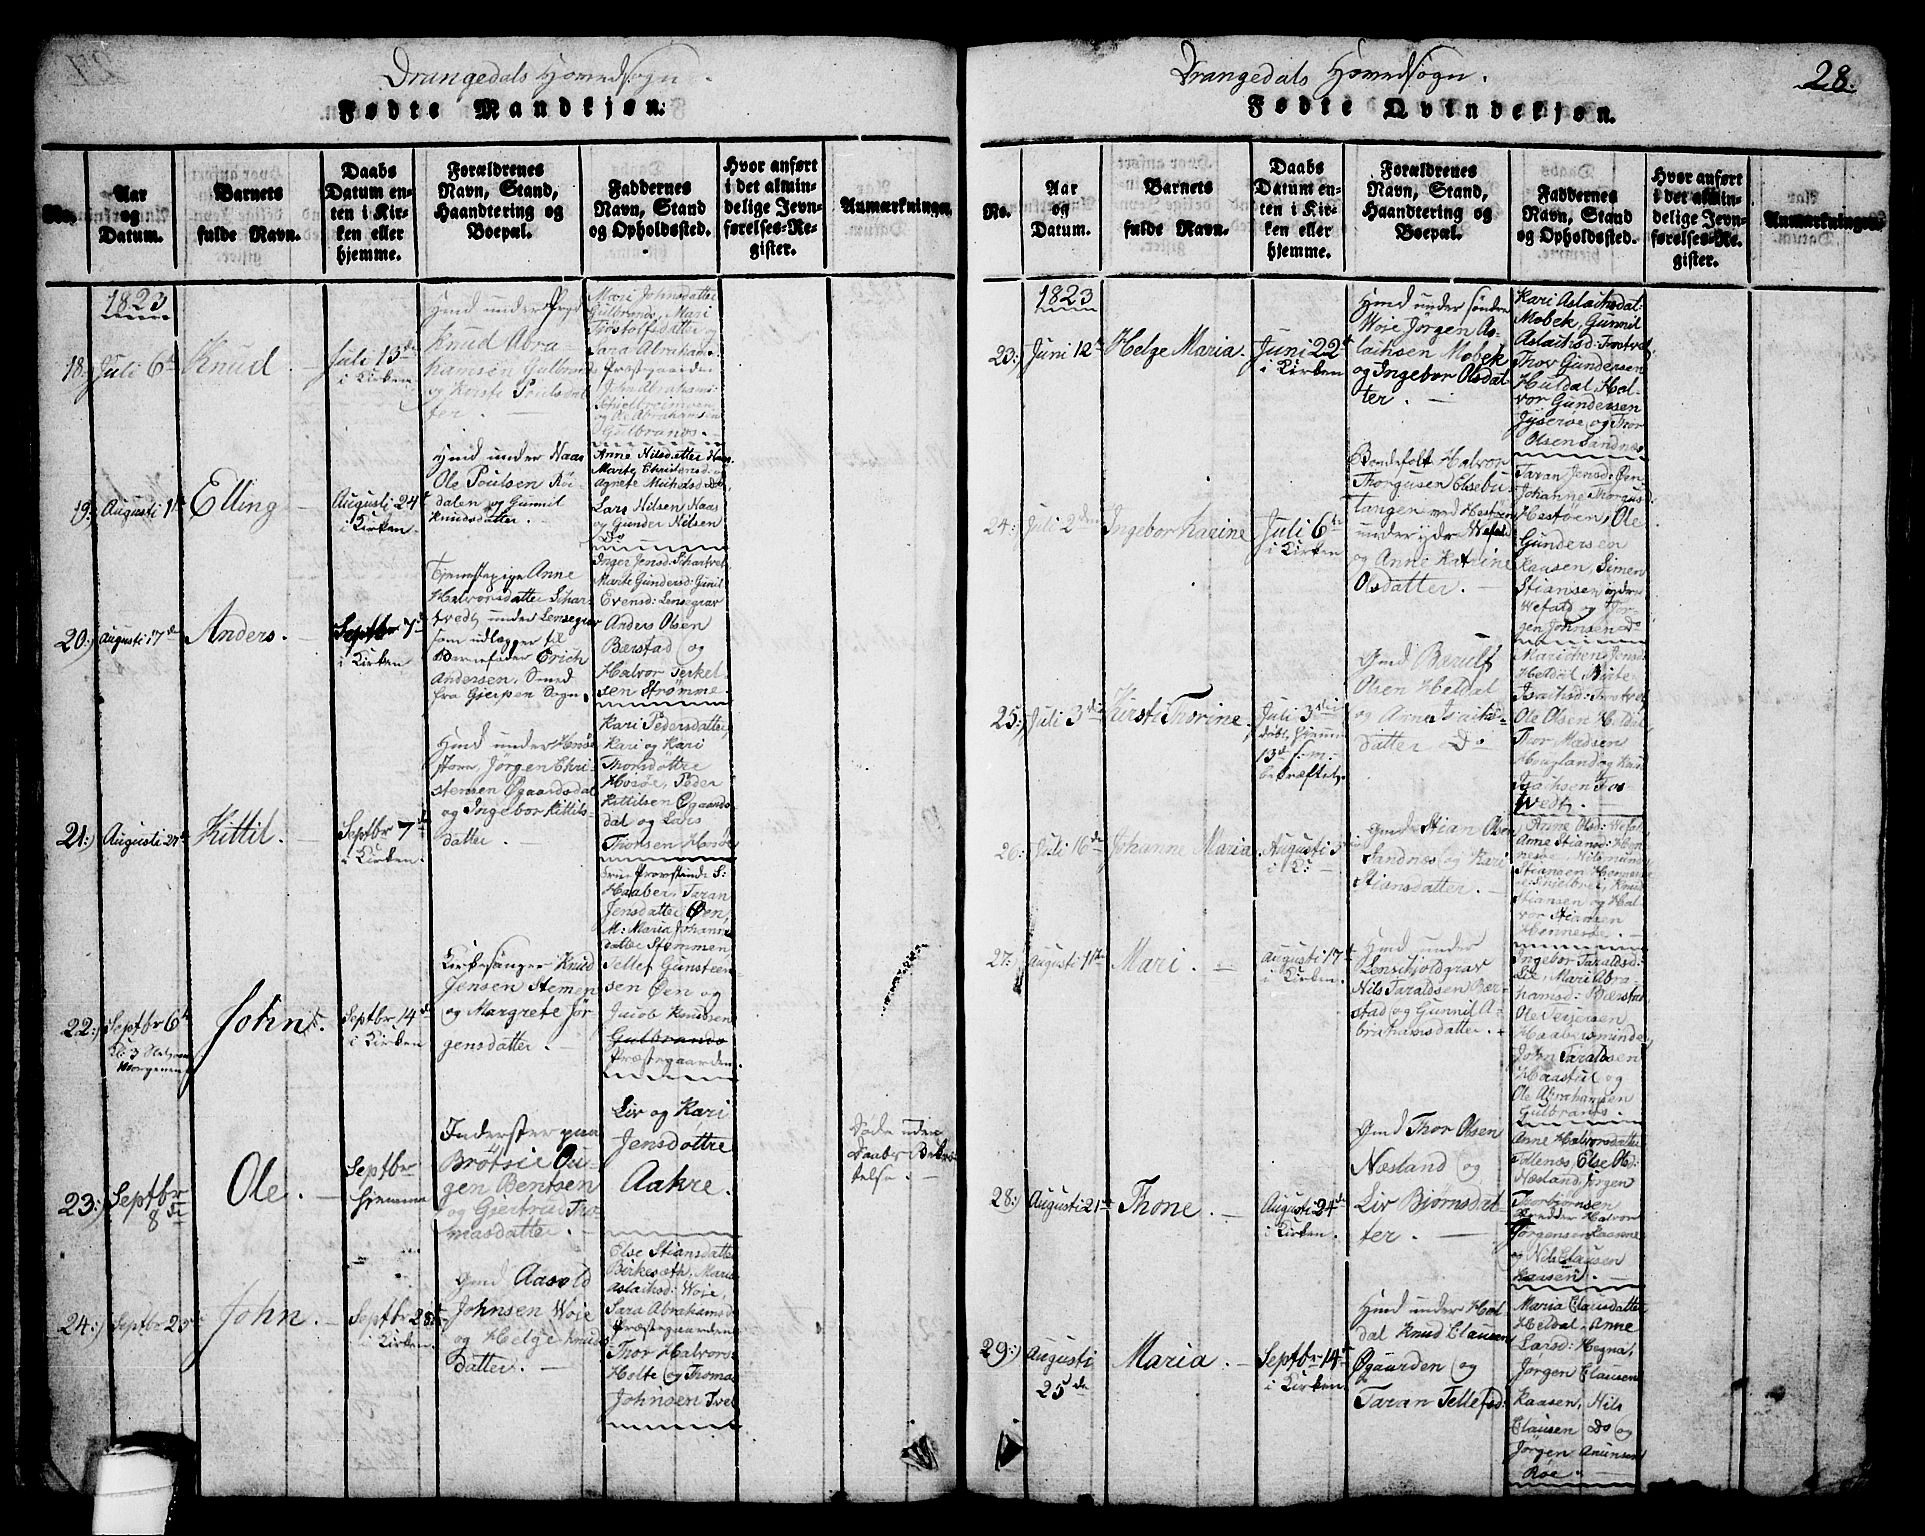 Drangedals Hovedsogn.
Fødte Mandkjøn.
No.
Aar
og
Datum.
Barnets
fulde Navn.
Daabs
Datum en-
ten i Kir-
ken eller
hjemme.
Forældrenes
Navn, Stand,
Haandtering og
Boepæl.
Faddernes
Navn, Stand
og Opholdssted.
Hvor anført
i det almin-
delige Jevn-
førelses-Re-
gister.
Anmærkninger.
1823
18.
Juli 6te
Knud
Juli 13de
i Kirken
Hmd under
Knud Abra-
hamsen Gulbrands
og Kirsti Poulsdat
ter.
Mari Johnsdatter
Gulbrands, Mari
datter og
Sara Abrahams.
Præstegaarden
John Abrahams
og Ole Abrahamsen
Gulbrands.
19.
Augusti 1te
Elling
Augusti 24de
i Kirken
Hmd under Naas
Ole Poulsen Rø-
dalen og Gunnil
Knudsdatter.
Anne Nilsdatter Naas
Marte Christensd: og
Agnete Michelsd: do,
Lars Nilsen Naas
og Gunder Nilsen
Do
20:)
Augusti 17de
Anders.
Septbr 7de
i Kirken
Tjenestepige Anne
Halvorsdatter Skar-
tvedt under Lensegrav
som udlægger til
Barnefader Erich
Andersen, Smed
fra Gjerpen Sogn.
Inger Jensd: Schartvet
Marte Gundersd: Gunil
Evensd: Lensegrav
Anders Olsen
Bærstad og
Halvor Terkel-
sen Strømme.
21:)
Augusti 27de
Kittil.
Septbr 7de
i Kirken
Hmd under
Jørgen Chri-
stensen Øgaardsdal
og Ingebor Kittils-
datter.
Kari Pedersdatter,
Kari og Kari
Thorsdøttre
Hosøe, Peder
Kittilsen Øgaards
dal og Lars
Thorsen Hosøe
22:)
Septbr 6te
Kl: 3
Morgenen
John.
Septbr 14de
i Kirken
Kirkesanger Knud
Jensen Stemen
og Margrete Jør
gensdatter.
Haaber, Taran
Jensdatter Øen,
M: Maria Johanns
datter Stemmen
Tellef Gunsteen-
sen Øen og
Jacob Knudsen
Gulbrands
Præstegaarden.
23:)
Septbr
8de
Ole.
Septbr
Hjemme
Inderster paa
Brøtsie Ou-
gen Bentsen
og Giertrud Tho
masdatter.
Liv og Kari
Jensdøttre
Aakre.
Døde uden
Daabs Bekræf-
telse.
24:)
Septbr 25de
John.
Septbr 28de
i Kirken.
Gmd Aasold
Johnsen Woje
og Helge Knuds
datter.
Else Stiansdatter
Birkesæth, Mari
Aslachsd: Woje,
Sara Abrahamsd
Præstegaarden
Thor Halvors-
Holte og Thomas
Johnsen Tvet
Drangedals Hovedsogn.
28.
Fødte Qvindekjøn.
No.
Aar
og
Datum.
Barnets
fulde Navn.
Daabs
Datum en-
ten i Kir-
ken eller
hjemme.
Forældrenes
Navn, Stand,
Haandtering og
Boepæl.
Faddernes
Navn, Stand
og Opholdssted.
Hvor anført
i det almin-
delige Jevn-
førelses-Re-
gister.
Anmærkninger.
1823
23:)
Juni 12te
Helge Maria.
Juni 22de
i Kirken
Hmd under søndre
Woje Jørgen As-
lachsen Mobek
og Ingebor Olsdat-
ter.
Kari Aslachsdat:
Mobek, Gunnil
Aslachsd: Tvetvet,
Thor Gundersen
Huldal, Hal-
vor Gundersen
og Thor
Olsen Sandnæs
24:)
Juli 2den
Ingebor Karine
Juli 6te
i Kirken
Bondefolk Halvor
Thorgusen Elsebu-
tangen ved Hestøen
under ydre Wefald
og Anne Katrine
Olsdatter.
Taran Jensd: Øen
Johanne Thorgus
Hestøen, Ole
Gundersen
Kaasen, Simen
Stiansen ydre
Wefald og Jør-
gen Johnsen do
25:)
Juli 3de
Kirsti Thorine.
Juli 3de
13de
bekræftet
Gmd Bærulf
Olsen Heldal
og Anne Isachs-
datter Do
Marichen Jensd:
Heldal, Birte
Isachsd: Tvetvet
Ole Olsen Heldal,
Thor Madsen
Hougland og Knud
Isachsen Tos
vedt
26:)
Juli 16de
Johanne Maria.
Augusti 3de
i K:
Gmd Stian Olsen
Sandnæs og Kari
Stiansdatter.
Anne Olsd: Wefal
Anne Stiansd: Hen-
nesøe, Nils
Stiansen
Knud
Stiansen og Hal-
vor Stiansen
Hennesøe.
27:)
Augusti 11te
Mari.
Augusti 17de
i Kirken.
Hmd under
Lenschjoldgrav
Nils Taraldsen Bær-
stad og Gunnil A-
brahamsdatter.
Ingebor Taraldsd:
Lie, Mari Abra-
hamsd: Bærstad
Ole Terjersen
Haabesminde,
John Taraldsen
Haastul og
Ole Abrahamsen
Gulbrands.
28:)
Augusti 21de
Thone.
Augusti 24de
i Kirken.
Gmd Thor Olsen
Næsland og
Liv Bjørnsdat-
ter.
Anne Halvorsdatter
Tollenæs, Else Old:
Næsland, Jørgen
Thorbjørnsen
Halvor
Jørgensen Kaasene
og Nils Clausen
Kaasen.
29:)
Augusti
25de
Maria.
Septbr 14de
i Kirken.
Hmd under Hel
dal Knud Clausen
Øgaarden og
Taran Tellefsd:
Maria Clausdatter
Heldal, Anne
Larsd: Hegna,
Jørgen Clausen
Kaasen, Nils
Clausen Do og
Jørgen Anunsen
Røe.